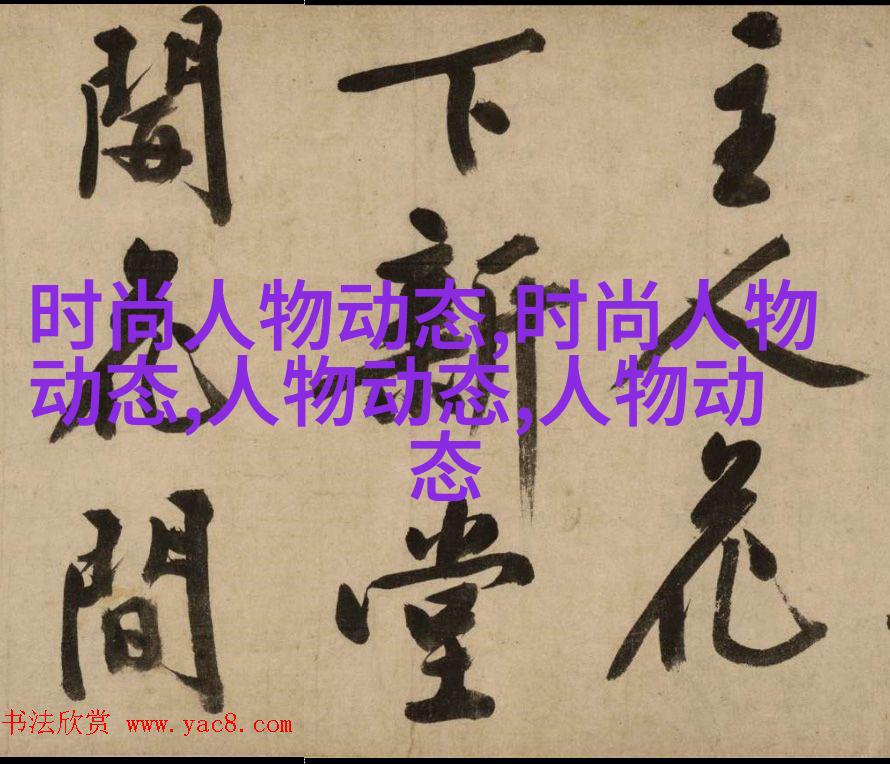 主人花
下新堂
間
时尚人物动态,时尚人物
动态,人物动态,人物动
态
书法欣赏 www.yac8.com